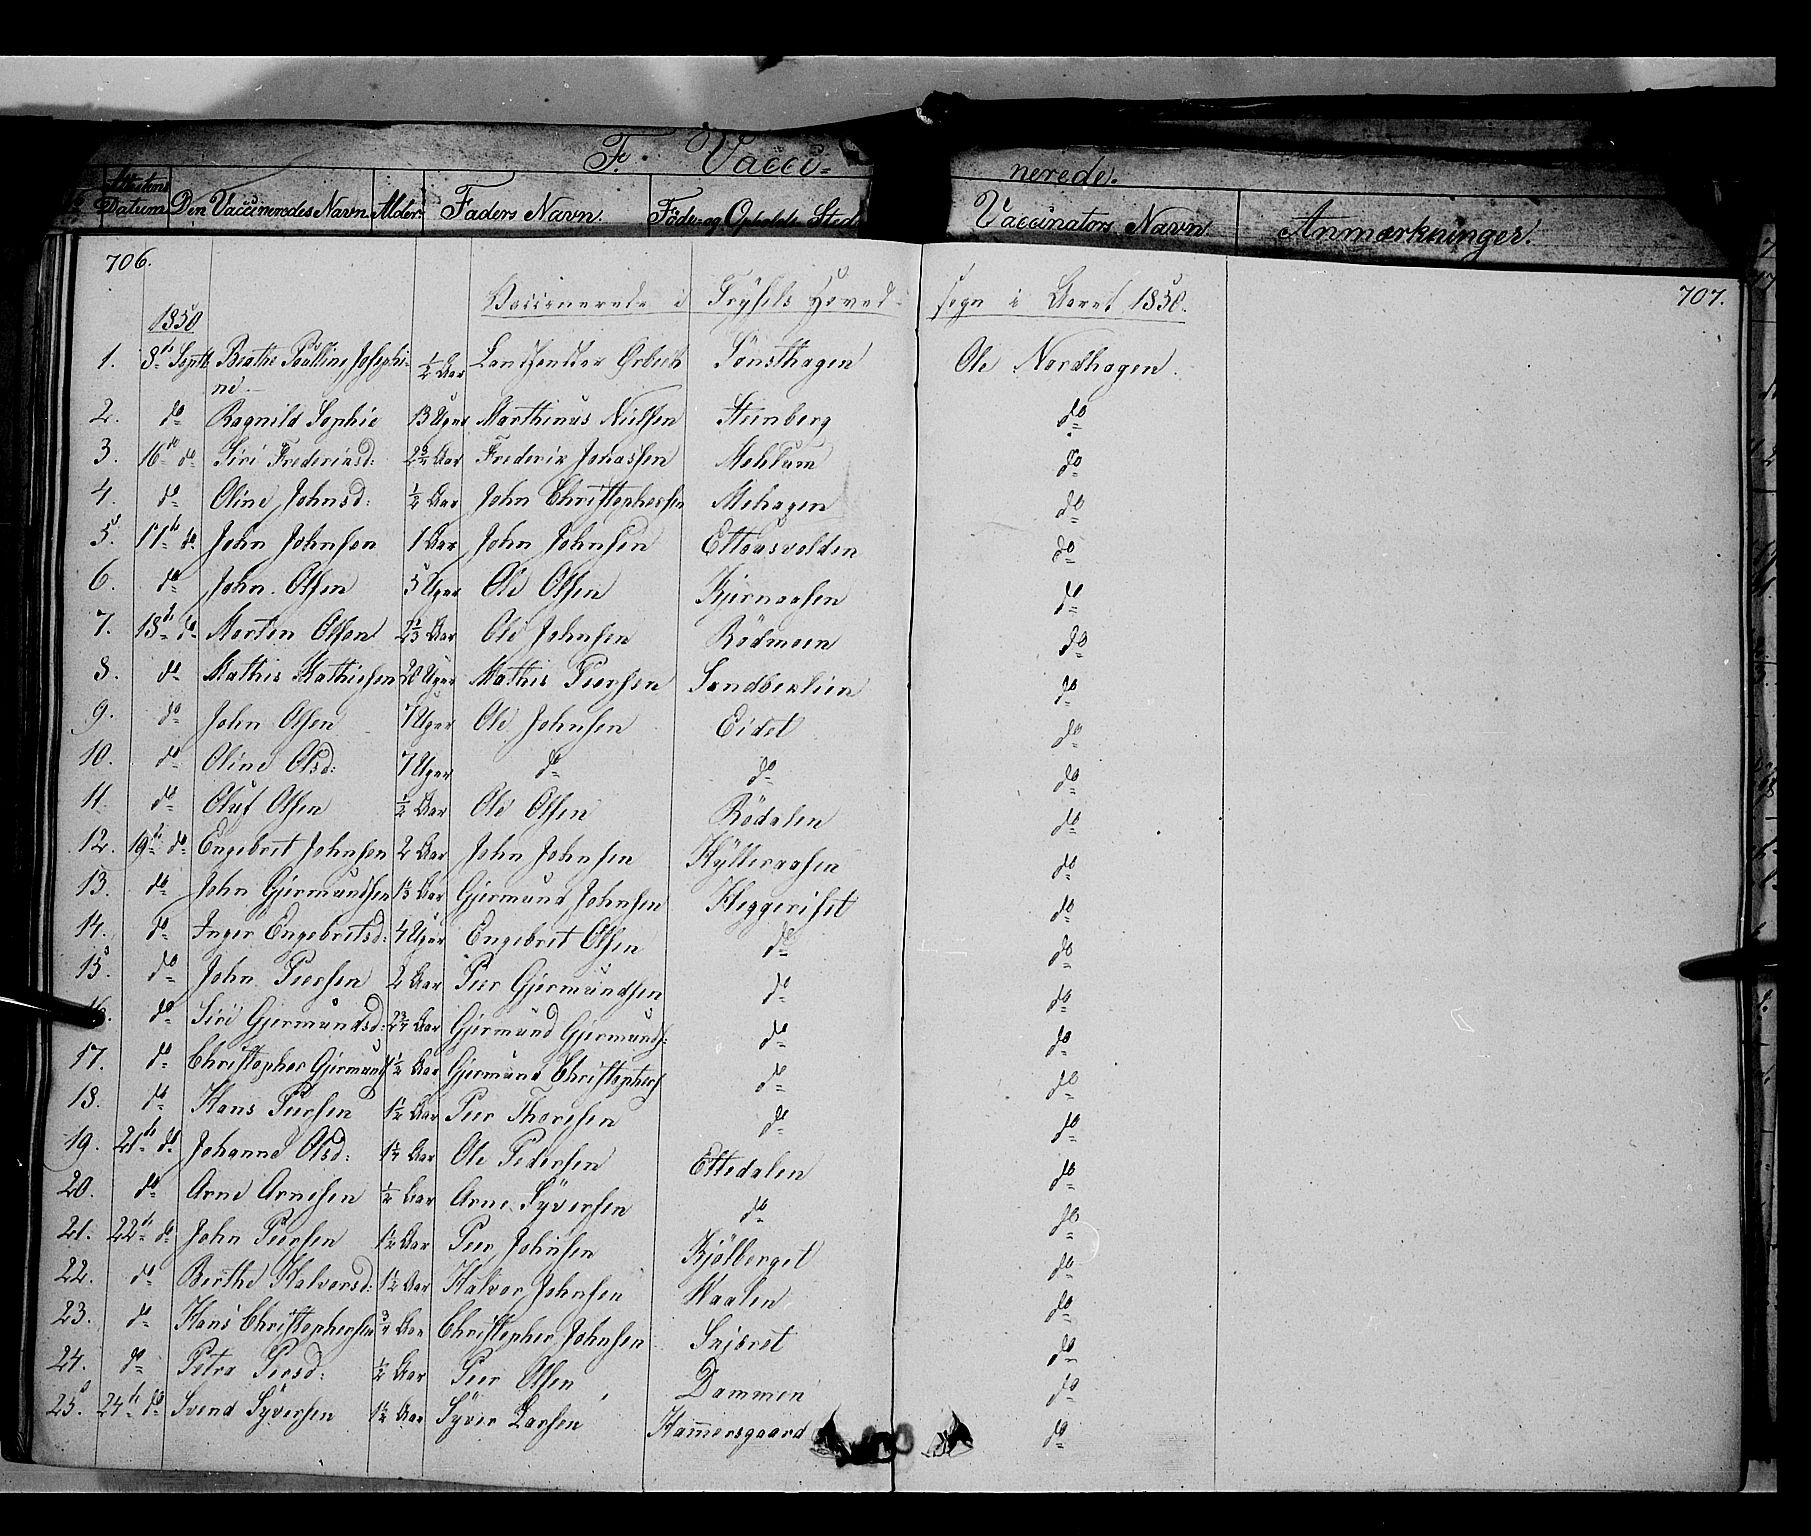 F. Vacci= nerede.
Attestens Datum Den Vaccineredes Navn Alder Faders Navn. Föde= og Opholds Sted Vaccinators Navn Anmærkninger.
706. 707.
Vaccinerede i Trysils Hoved- sogn i Aaret 1850.
1850
1. 8de Septb Beathe Paulline Josephi- ½ Aar Landhandler Ørbech Sönsthagen Ole Nordhagen.
ne
2. do Ragnild Sophie 13 Uger Marthinus Nielsen Steinberg do
3. 16de do Siri Frederiksd: Aar Frederik Johassen Mehlum do
4. do Oline Johnsd: ½ Aar John Christophersen Mehagen do
5. 17de do John Johnsen 1 Aar John Johnsen do
6. do John Olsen 5 Uger Ole Olsen Kjernaasen do
7. 18de do Morten Olsen Aar Ole Johnsen Rödmoen do
8. do Mathis Mathiesen 20 Uger Mathis Peersen Sandberlien do
9. do John Olsen 7 Uger Ole Johnsen Eidet do
10. do Oline Olsd: 7 Uger do do do
11. do Oluf Olsen ½ Aar Ole Olsen Rödalen do
12. 19de do Engebret Johnsen 2 Aar John Johnsen Hylleraasen do
13. do John Gjermundsen Aar Gjermund Johnsen Heggeriset do
14. do Inger Engebretsd: 4 Uger Engebret Olsen do do
15. do John Peersen 2 Aar Peer Gjermundsen do do
16. do Siri Gjermundsd: Aar Gjermund Gjermunds: do do
17. do Christopher Gjermunds 1½ Aar Gjermund Christophers do do
18. do Hans Peersen 1½ Aar Peer Thoresen do do
19. 21de do Johanne Olsd: Aar Ole Pedersen Ettedalen do
20. do Arne Arnesen ½ Aar Arne Syversen do do
21. 22de do John Peersen 1½ Aar Peer Johnsen Kjölberget do
22. do Berthe Halvorsd: 1½ Aar Halvor Johnsen Waalen do
23. do Hans Christophersen ¾ Aar Christopher Johnsen Snjoret do
24. do Petra Peersd: ½ Aar Peer Olsen Dammen do
25. 24de do Svend Syversen 1½ Aar Syver Larsen Hamersgaard do